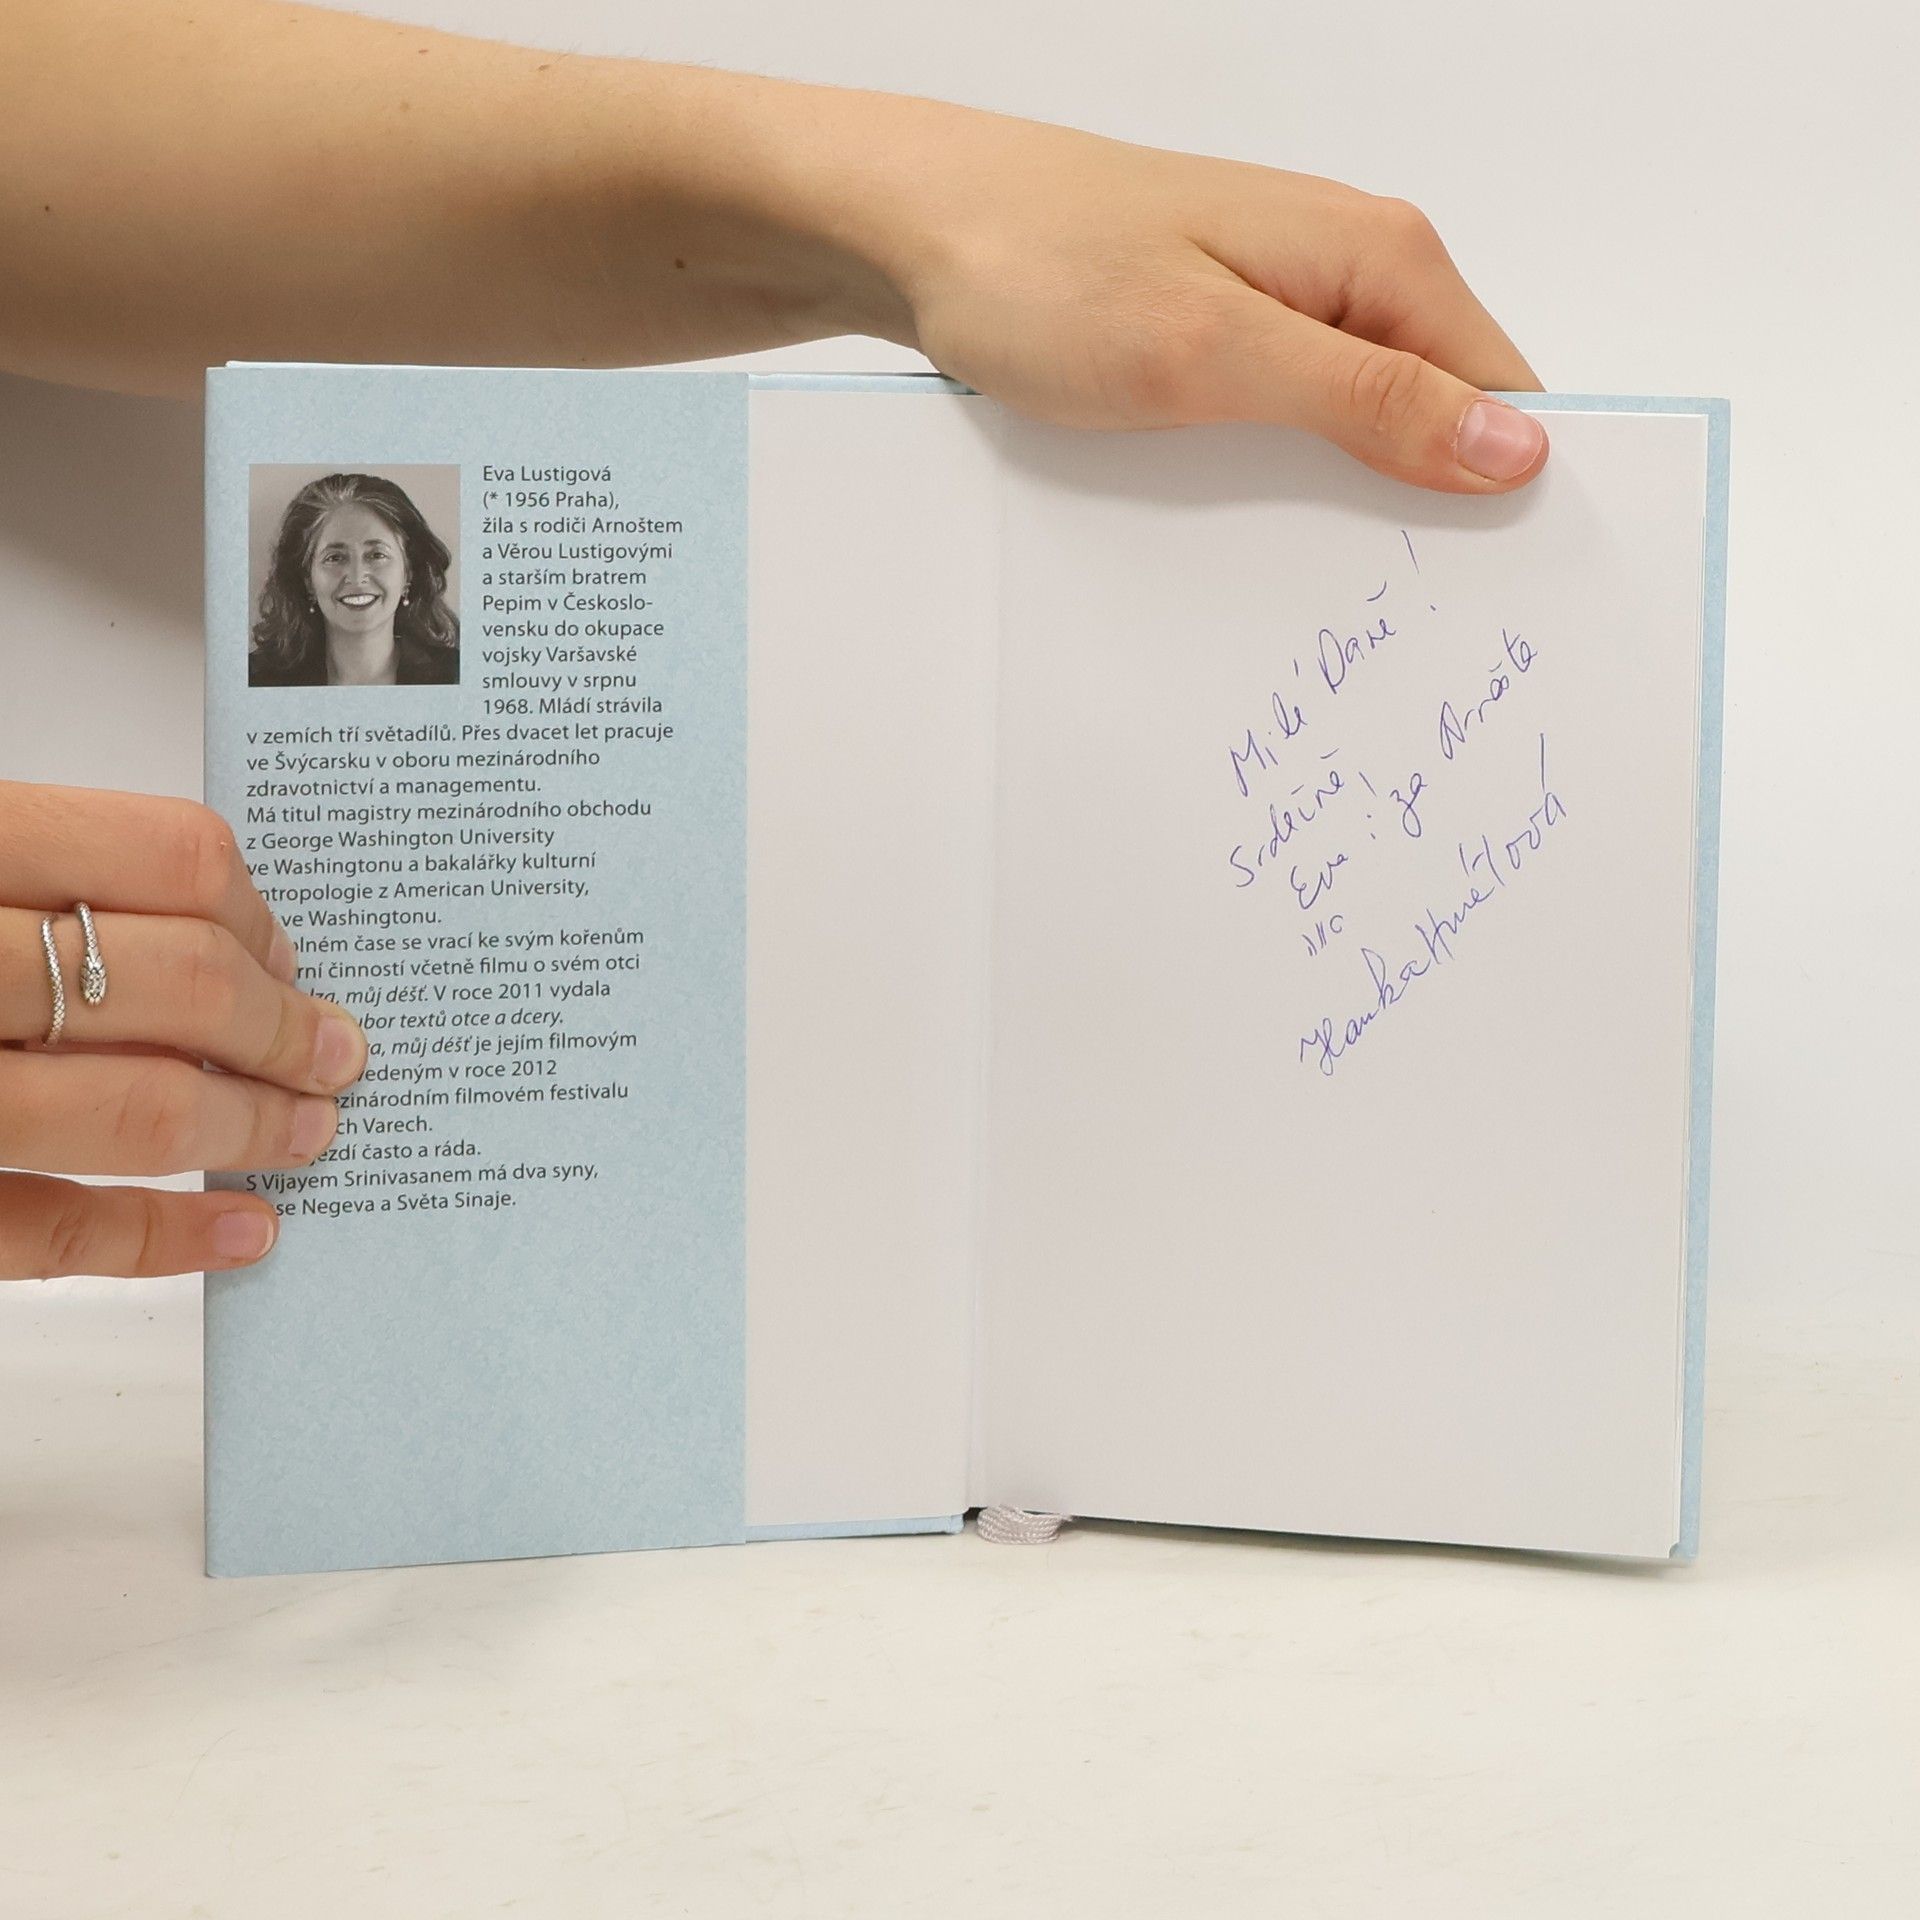 Eva Lustigová
(* 1956 Praha),
žila s rodiči Arnoštem
a Věrou Lustigovými
a starším bratrem
Pepim v Českoslo-
vensku do okupace
vojsky Varšavské
smlouvy v srpnu
1968. Mládí strávila
v zemích tří světadílů. Přes dvacet let pracuje
ve Švýcarsku v oboru mezinárodního
zdravotnictví a managementu.
Má titul magistry mezinárodního obchodu
z George Washington University
ve Washingtonu a bakalářky kulturní
ntropologie z American University,
ve Washingtonu.
olném čase se vrací ke svým kořenům
rní činností včetně filmu o svém otci
lza, můj déšť. V roce 2011 vydala
ubor textů otce a dcery.
a, můj déšť je jejím filmovým
vedeným v roce 2012
ezinárodním filmovém festivalu
ch Varech.
jezdí často a ráda.
S Vijayem Srinivasanem má dva syny,
se Negeva a Světa Sinaje.
Milé Daně!
Srdečně!
Eva i za Arnošta
Hanka Hnátová